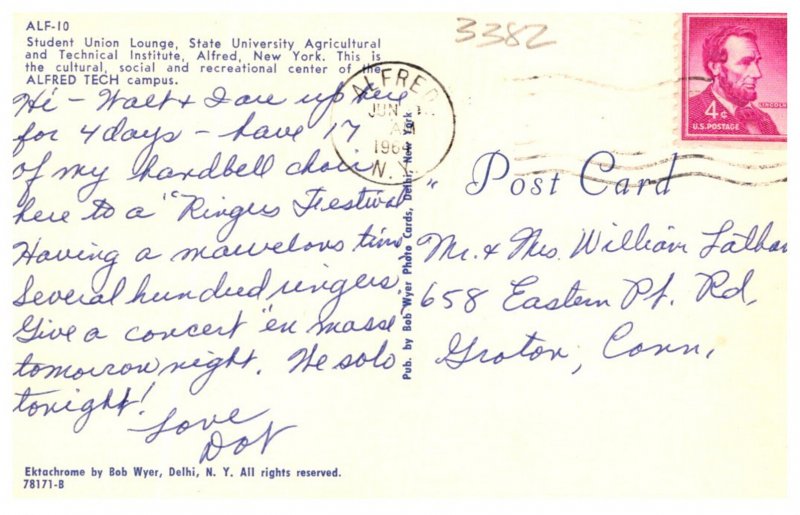 ALF-10
Student Union Lounge, State University Agricultural
and Technical Institute, Alfred, New York. This is
the cultural, social and recreational center of the
ALFRED TECH campus.
Hi - Walt & I are up here
for 4 days - have 17
of my handbell choir
here to a "Ringers Festival"
Having a marvelous time
Several hundred ringers.
Give a concert "en masse
tomorrow night. We solo
tonight!
Love
Dot
Ektachrome by Bob Wyer, Delhi, N. Y. All rights reserved.
78171-B
Pub. by Bob Wyer Photo Cards, Delhi, New York
3382
ALFRED
JUN
196
N.Y.
4¢
LINCOLN
U.S. POSTAGE
Post Card
Mr. & Mrs. William Latham
658 Eastern Pt. Rd,
Groton, Conn,